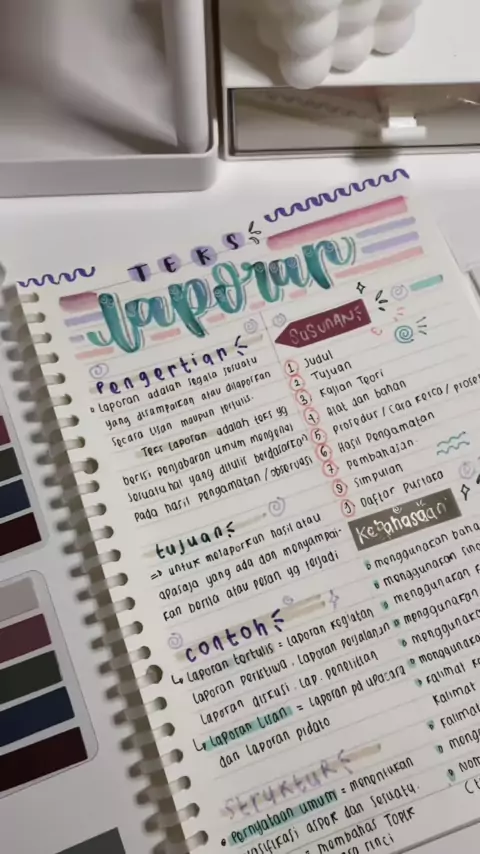 TEKS
laporan
Pengertian
Laporan adalah segala sesuatu
yang disampaikan atau dilaporkan
secara lisan maupun tertulis.
Teks laporan adalah teks yg
berisi penjabaran umum mengenai
sesuatu hal yang ditulis berdasarkan
pada hasil pengamatan / observasi
tujuan
=> untuk melaporkan hasil atau
apasaja yang ada dan menyampai-
kan berita atau pesan yg terjadi
contoh
↳ Laporan tertulis = Laporan kegiatan
Laporan peristiwa, Laporan perjalanan
Laporan diskusi, Lap. penelitian
↳ Laporan Lisan = Laporan pd upacara
dan Laporan pidato
struktur
Pernyataan umum = menentukan
aspek dan sesuatu.
membahas TOPIK
rinci
SUSUNAN
1 Judul
2 Tujuan
3 Kajian Teori
4 Alat dan bahan
5 Prosedur / Cara Kerja /
6 Hasil Pengamatan
7 Pembahasan
8 Simpulan
9 Daftar Pustaka
Kebahasaan
menggunakan
menggunakan
menggunakan
menggunakan
kalimat
kalimat